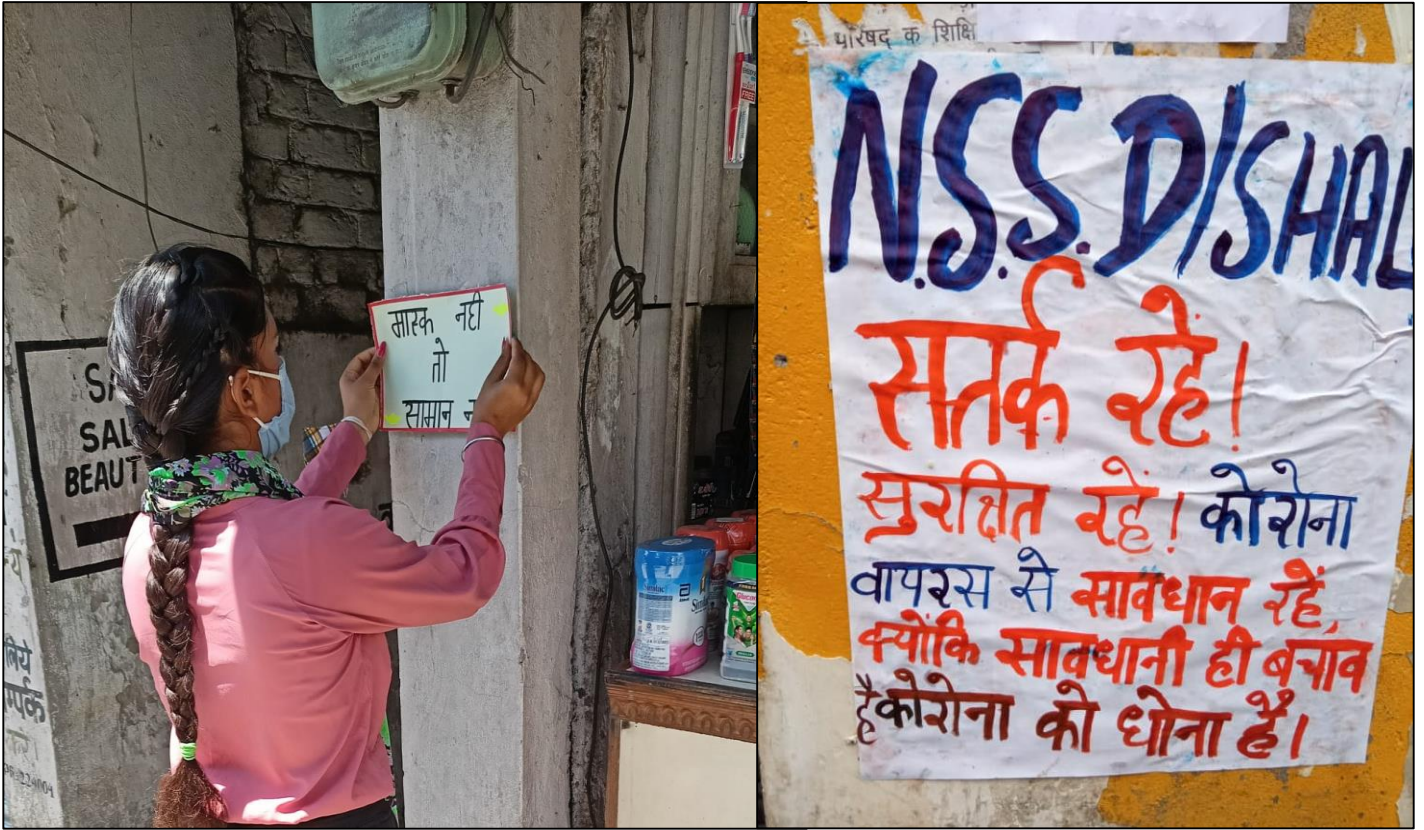 SAL
BEAUT
मास्क नही
तो
सामान
FREE
लिये
परिषद क शिक्षि
N.S.S. DISHA
सतर्क रहें!
सुरक्षित रहें! कोरोना
वायरस से सावधान रहें,
क्योंकि सावधानी ही बचाव
है कोरोना को धोना है।